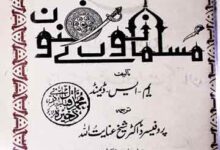 مسلمانوں کے فنون
تالیف
ایم۔ایس۔ڈیمنڈ
ترجمہ
پروفیسر ڈاکٹر شیخ عنایت اللہ